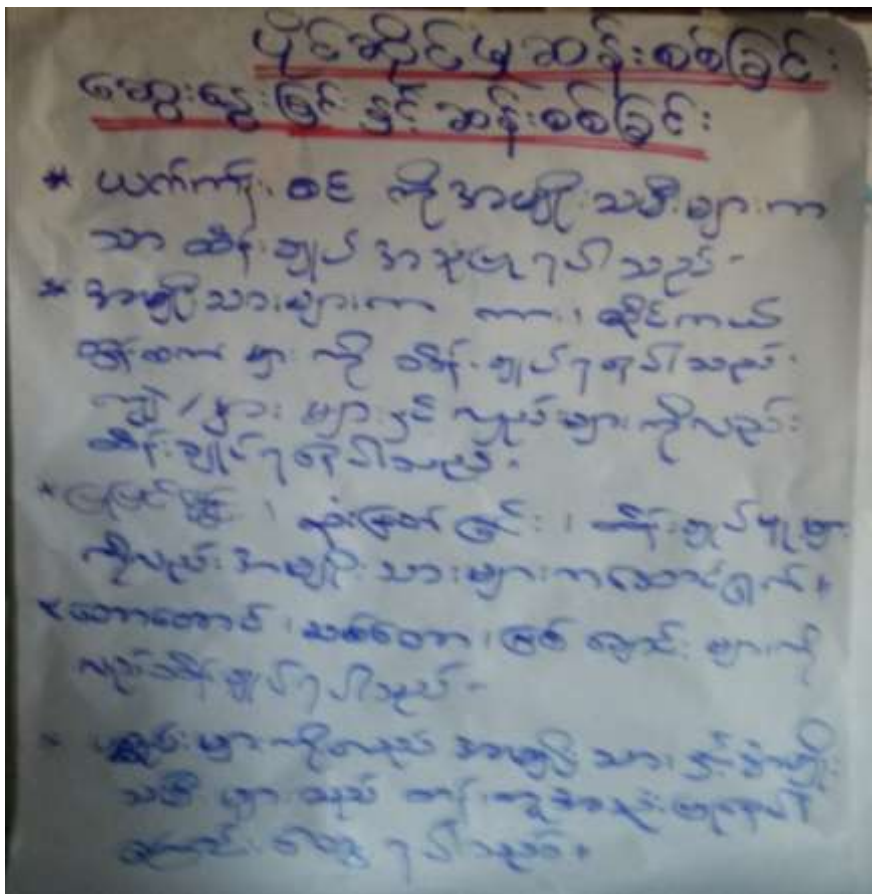 ပိုင်ဆိုင်မှုဆန်းစစ်ခြင်း
ဆွေးနွေးခြင်း နှင့် ဆန်းစစ်ခြင်း
* ယက်ကန်းစင် ကိုအမျိုးသမီးများက
သာ ထိန်းချုပ် အသုံးပြုရပါသည်-
* အမျိုးသားများက ကား၊ ဆိုင်ကယ်
များ ကို ထိန်းချုပ်ရပါသည်-
ကျွဲ / နွား များနှင့် လှည်းများကိုလည်း
ထိန်းချုပ်ရပါသည်-
* ပြုပြင်ခြင်း၊ ဆုံးဖြတ်ခြင်း၊ ထိန်းချုပ်မှုများ
ကိုလည်း အမျိုးသားများကဆောင်ရွက်။
* တောတောင်၊ သစ်တော၊ မြစ်ချောင်း များကို
လည်းထိန်းချုပ်ရပါသည်-
* များကိုလည်း အမျိုးသား နှင့်အမျိုး
သမီး များသည် တန်းတူ
ရပါသည်။